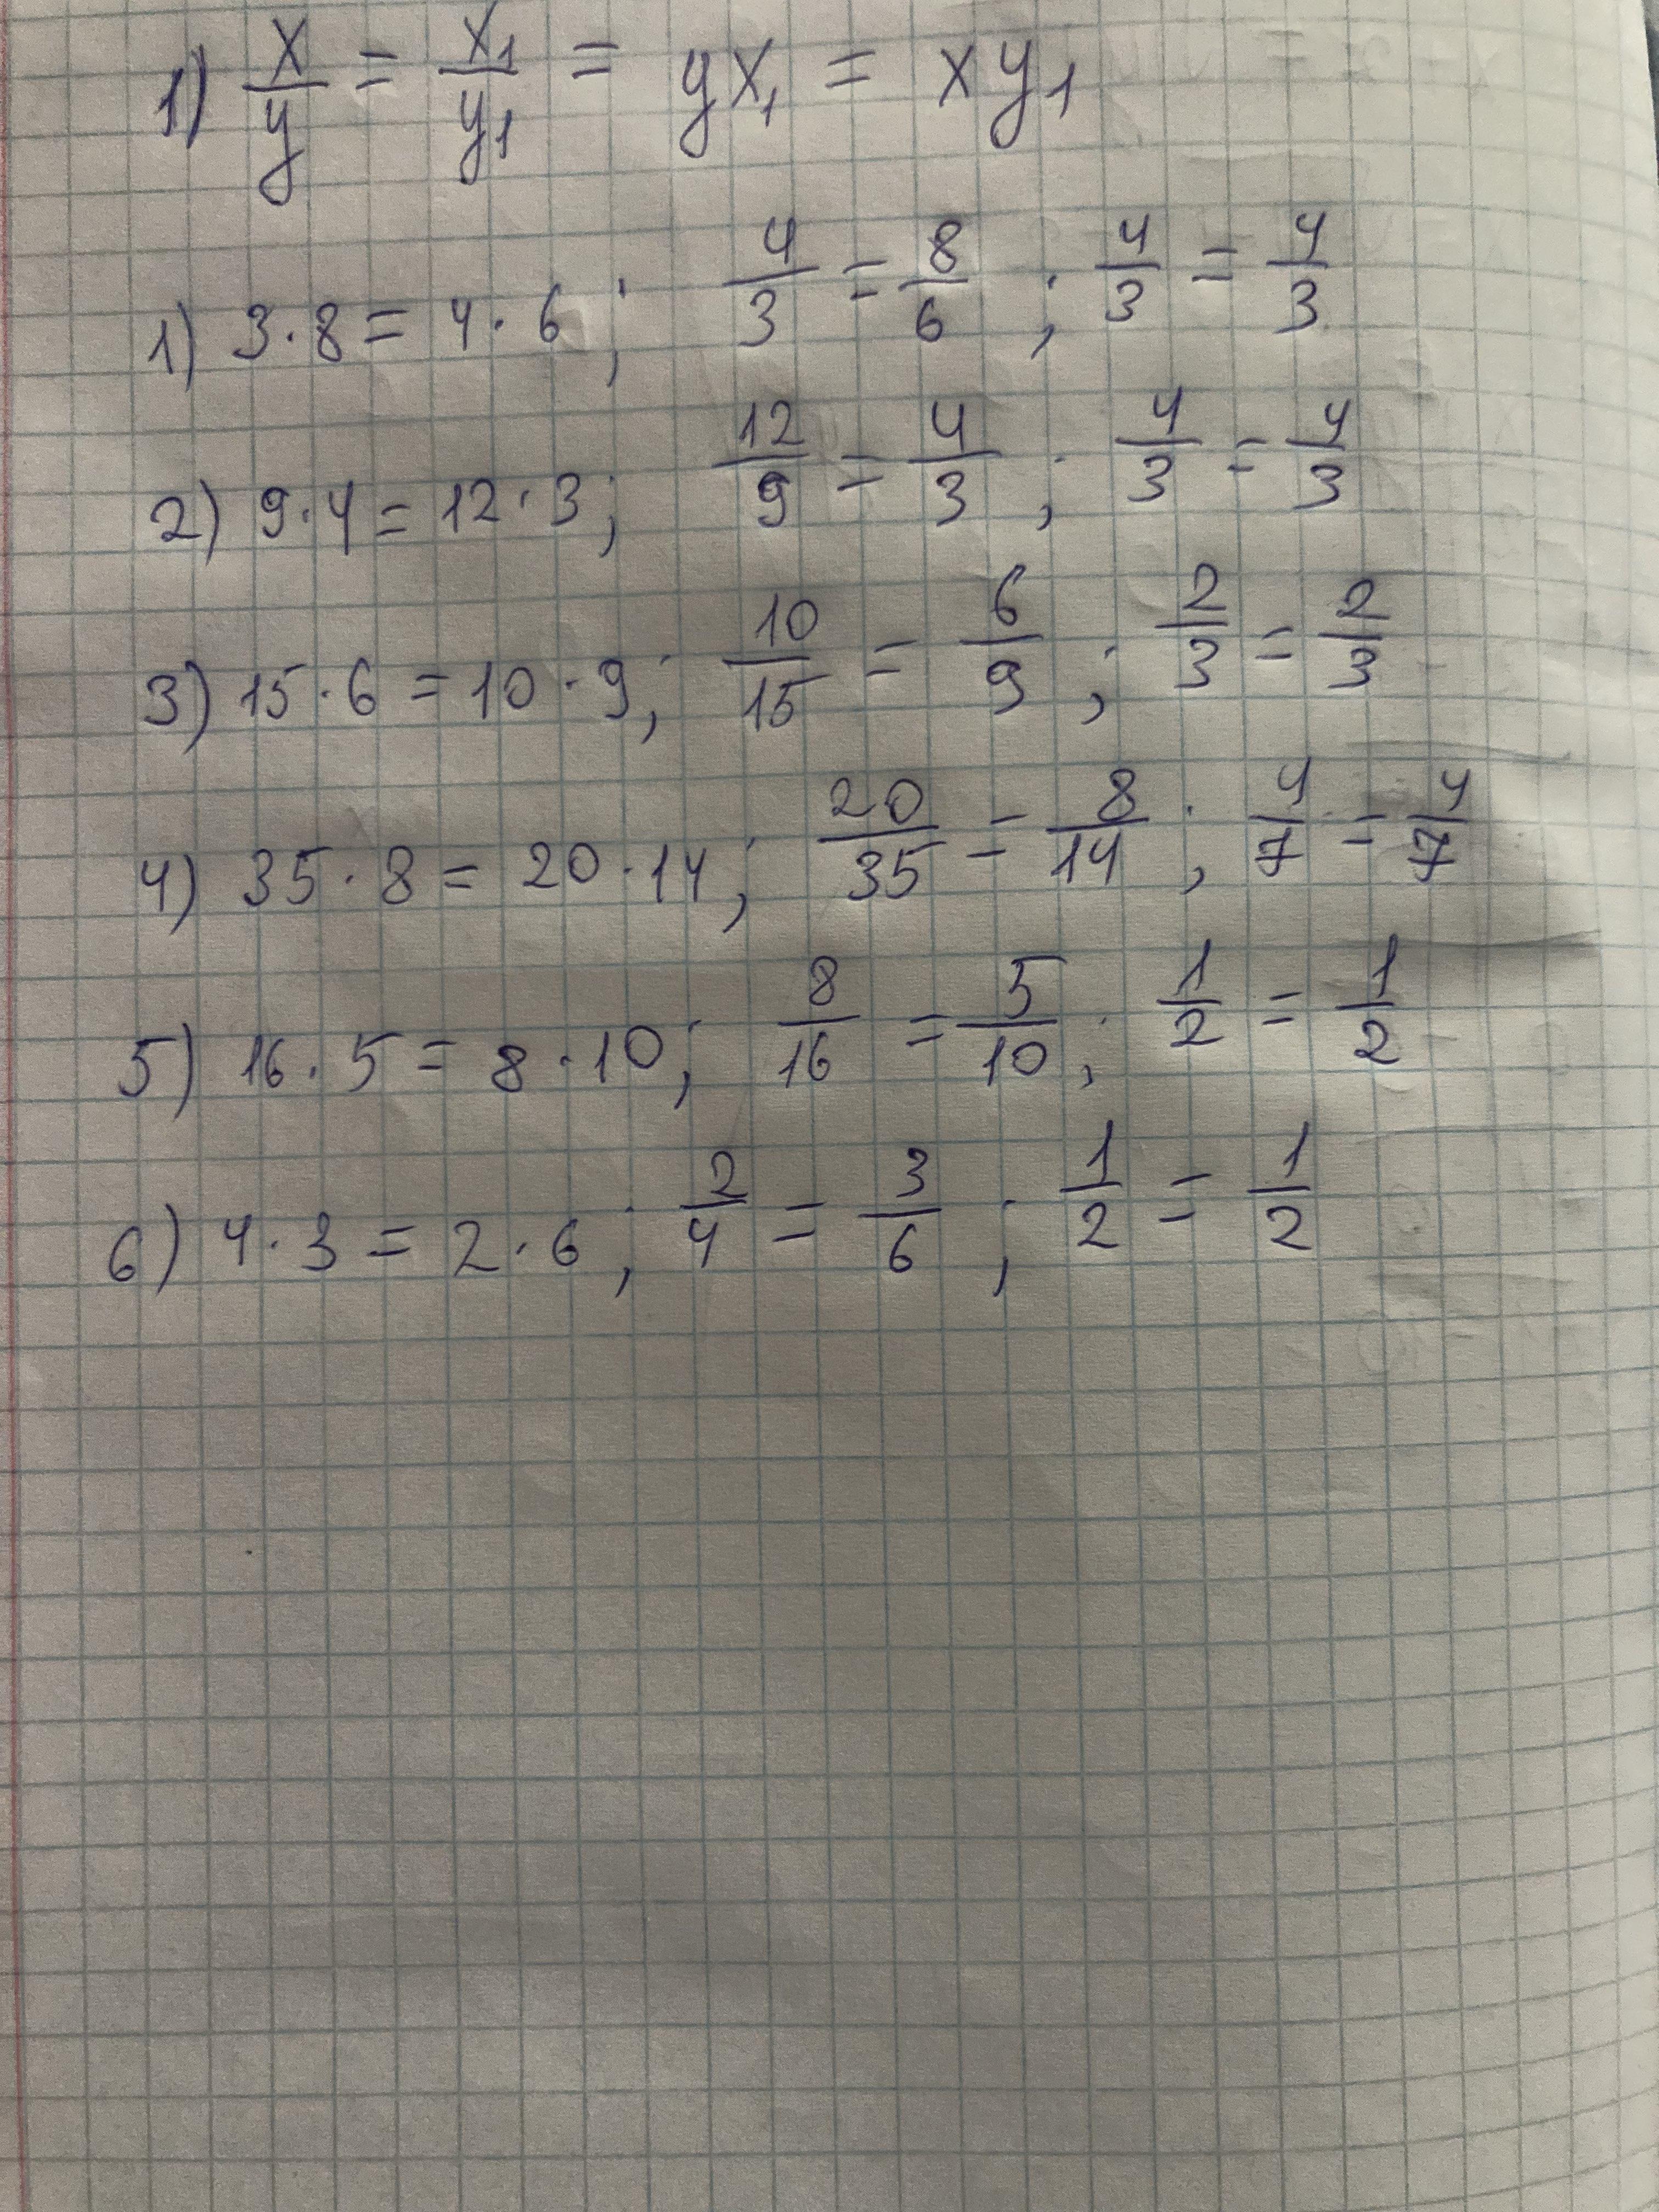 1) x/y = x₁/y₁ = yx₁ = xy₁
1) 3·8 = 4·6; 4/3 = 8/6; 4/3 = 4/3
2) 9·4 = 12·3; 12/9 = 4/3; 4/3 = 4/3
3) 15·6 = 10·9; 10/15 = 6/9; 2/3 = 2/3
4) 35·8 = 20·14; 20/35 = 8/14; 4/7 = 4/7
5) 16·5 = 8·10; 8/16 = 5/10; 1/2 = 1/2
6) 4·3 = 2·6; 2/4 = 3/6; 1/2 = 1/2